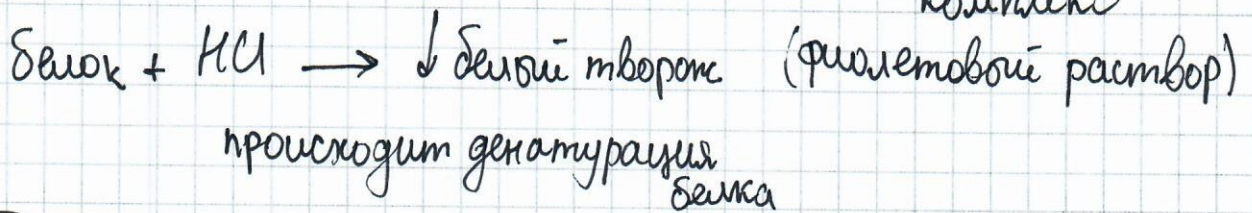 комплекс
белок + HCl → ↓ белый творож (фиолетовый раствор)
происходит денатурация
белка